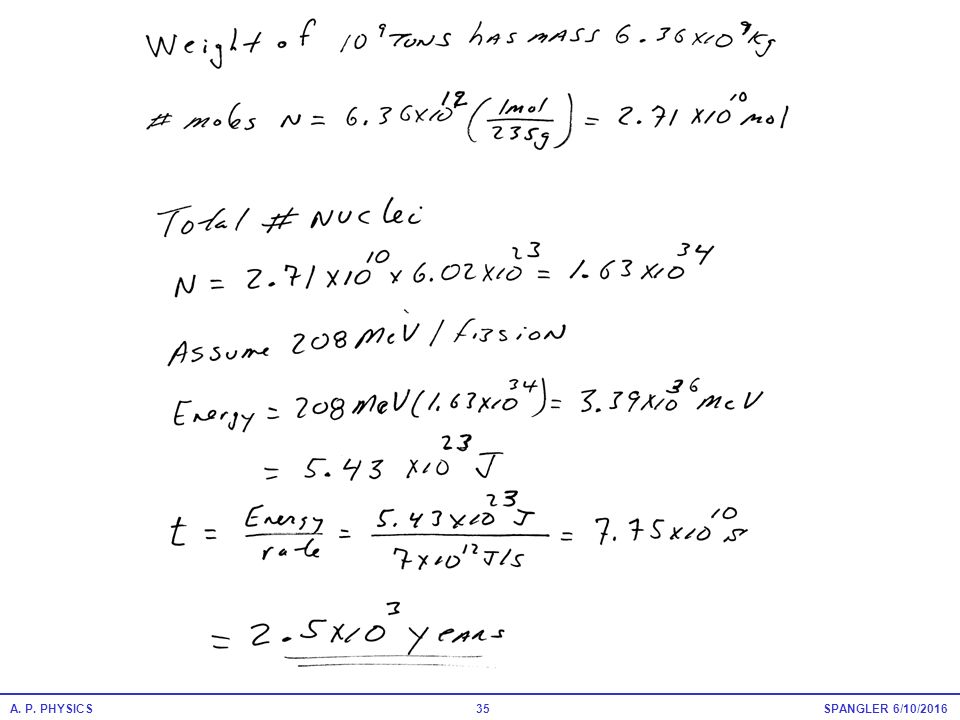 Weight of 10⁹ TONS has MASS 6.36x10⁹ Kg
# moles N = 6.36x10¹² (1mol/235g) = 2.71 x10¹⁰ mol
Total # Nuclei
N = 2.71x10¹⁰ x 6.02x10²³ = 1.63x10³⁴
Assume 208 MeV / fission
Energy = 208 MeV (1.63x10³⁴) = 3.39x10³⁶ MeV
= 5.43 x10²³ J
t = Energy/rate = 5.43x10²³ J/7x10¹² J/s = 7.75x10¹⁰ s
= 2.5x10³ years
A. P. PHYSICS 35 SPANGLER 6/10/2016